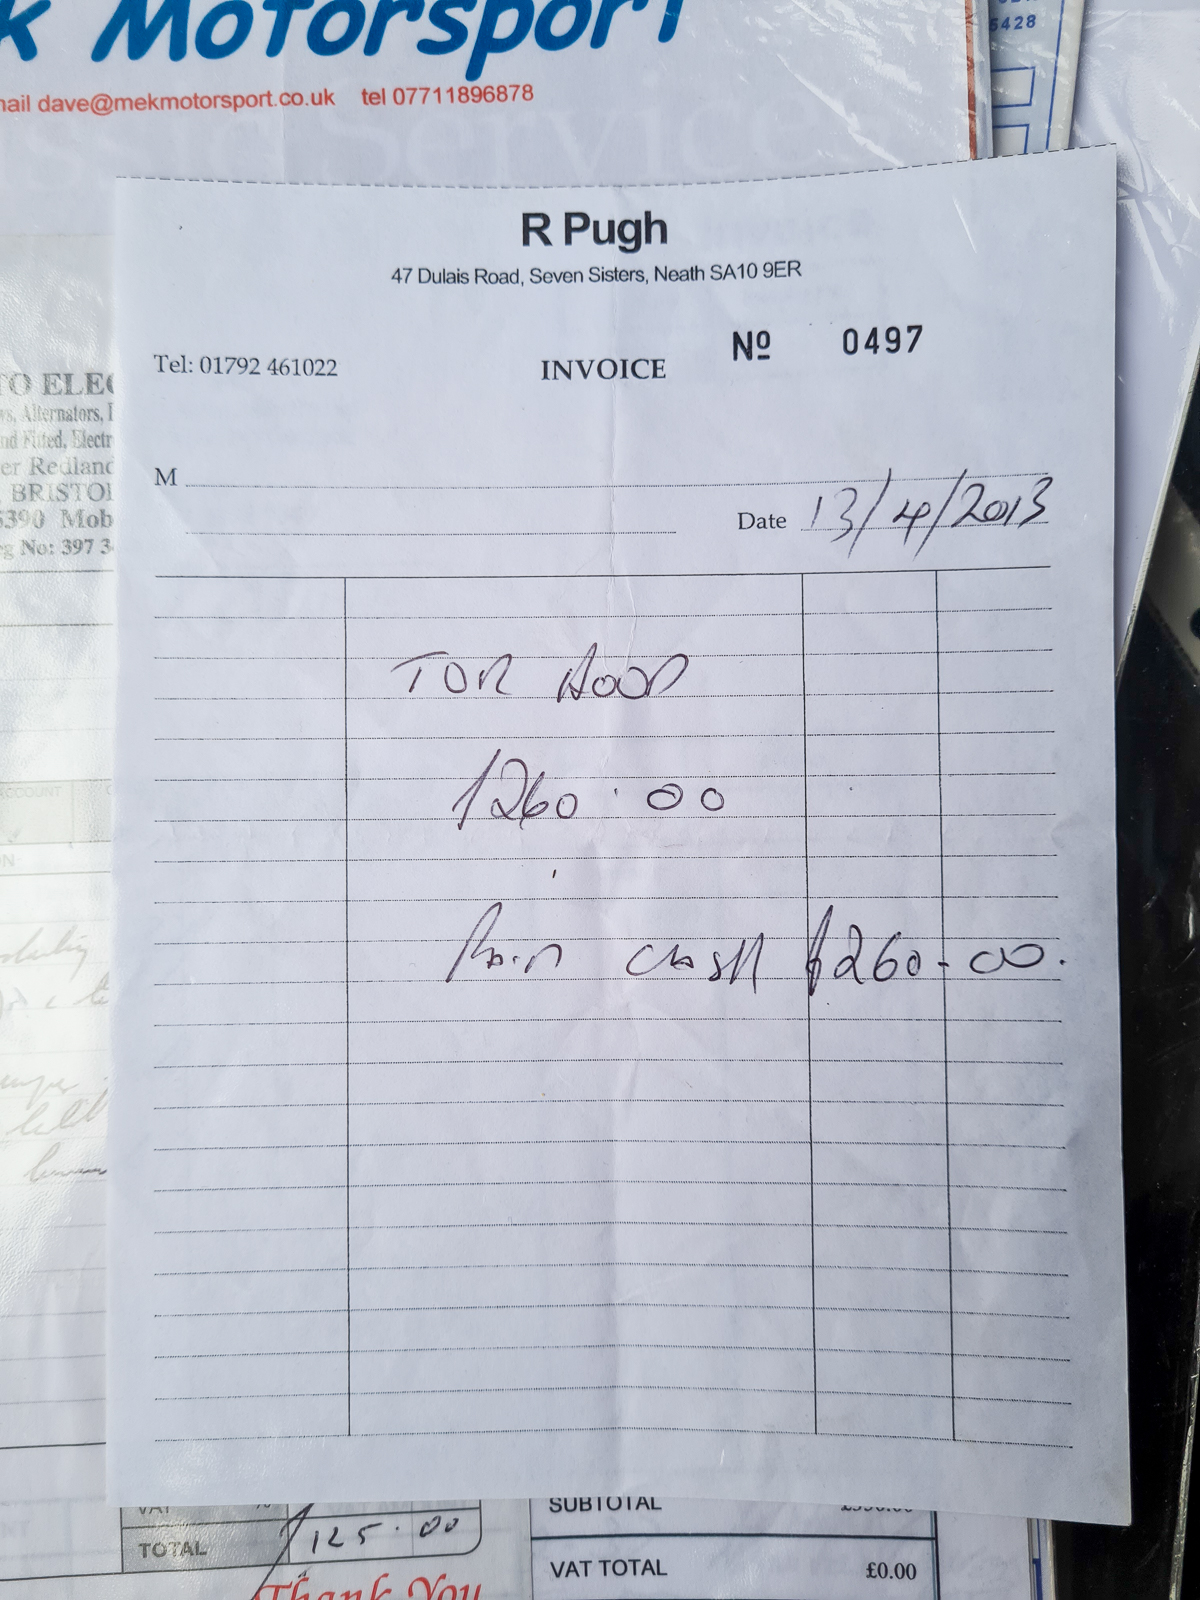 k Motorsport
nail dave@mekmotorsport.co.uk tel 07711896878
5428
R Pugh
47 Dulais Road, Seven Sisters, Neath SA10 9ER
Tel: 01792 461022
INVOICE
Nº 0497
M
Date 13/4/2013
TO ELEC
ws, Alternators, I
nd Fitted, Electr
er Redland
BRISTOL
5390 Mob
g No: 397 3
ACCOUNT
TOR HOOD
£260.00
PAID CASH £260-00.
VAT %
TOTAL £125.00
Thank You
SUBTOTAL
VAT TOTAL £0.00